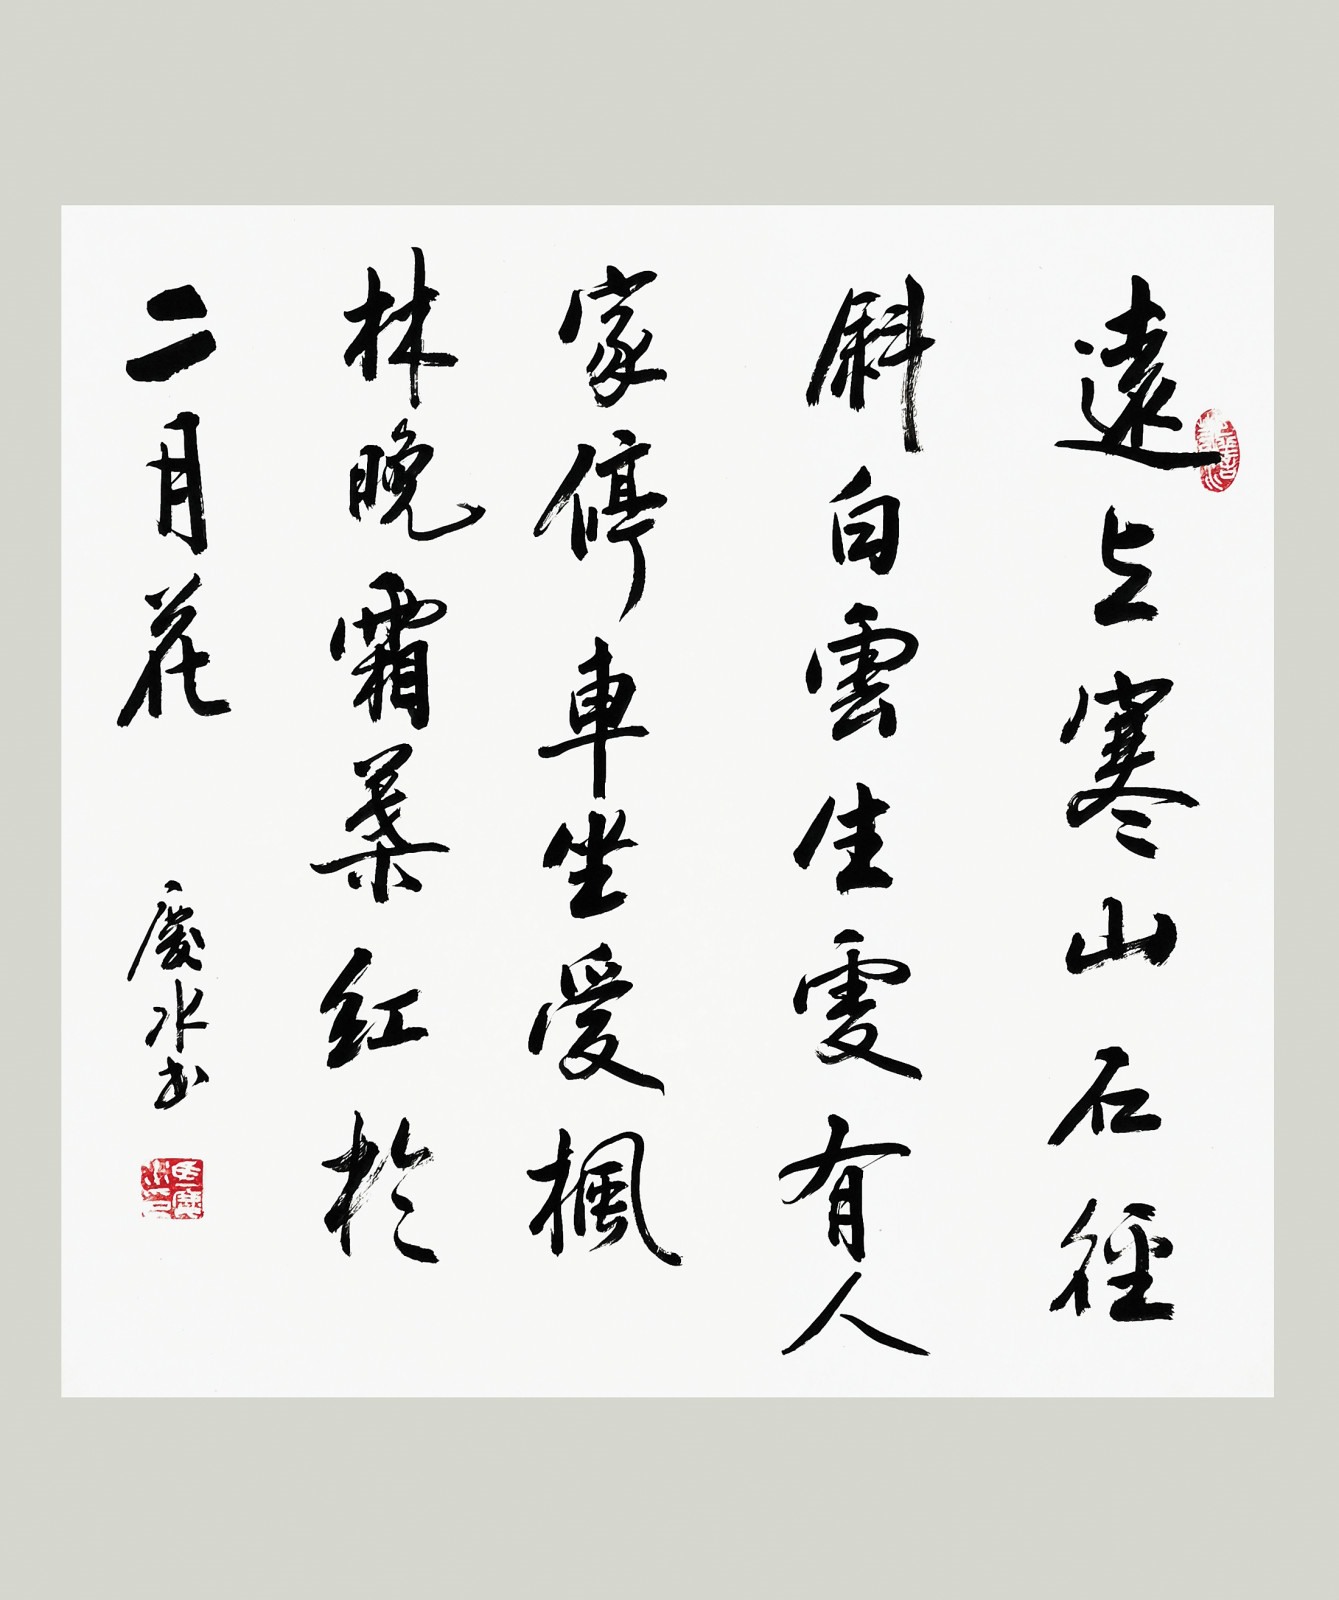 遠上寒山石徑
斜白雲生處有人
家停車坐愛楓
林晚霜葉紅於
二月花
慶水书